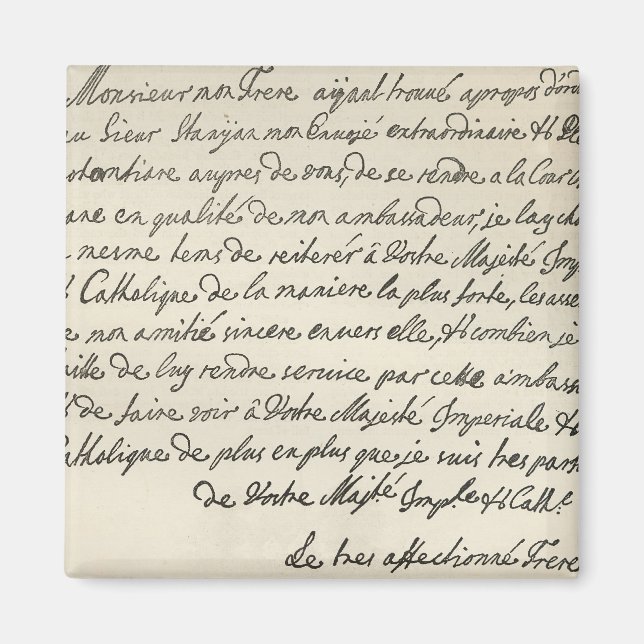 Monsieur mon Frere aÿant trouvé apropos d'or
au Sieur Stanjan mon Envojé extraordinaire & Ple
potentiare aupres de vous, de se rendre a la Cour
ane en qualité de mon ambassadeur, je lay cha
mesme tems de reiterér â Vostre Majesté Imp
& Catholique de la maniere la plus forte, les asse
e mon amitié sincere envers elle, & combien je
aitte de luy rendre service par cette ambass
& de faire voir â Vostre Majesté Imperiale &
atholique de plus en plus que je suis tres parf
de Vostre Majté. Imp.le & Cath.e
Le tres affectionné Frere